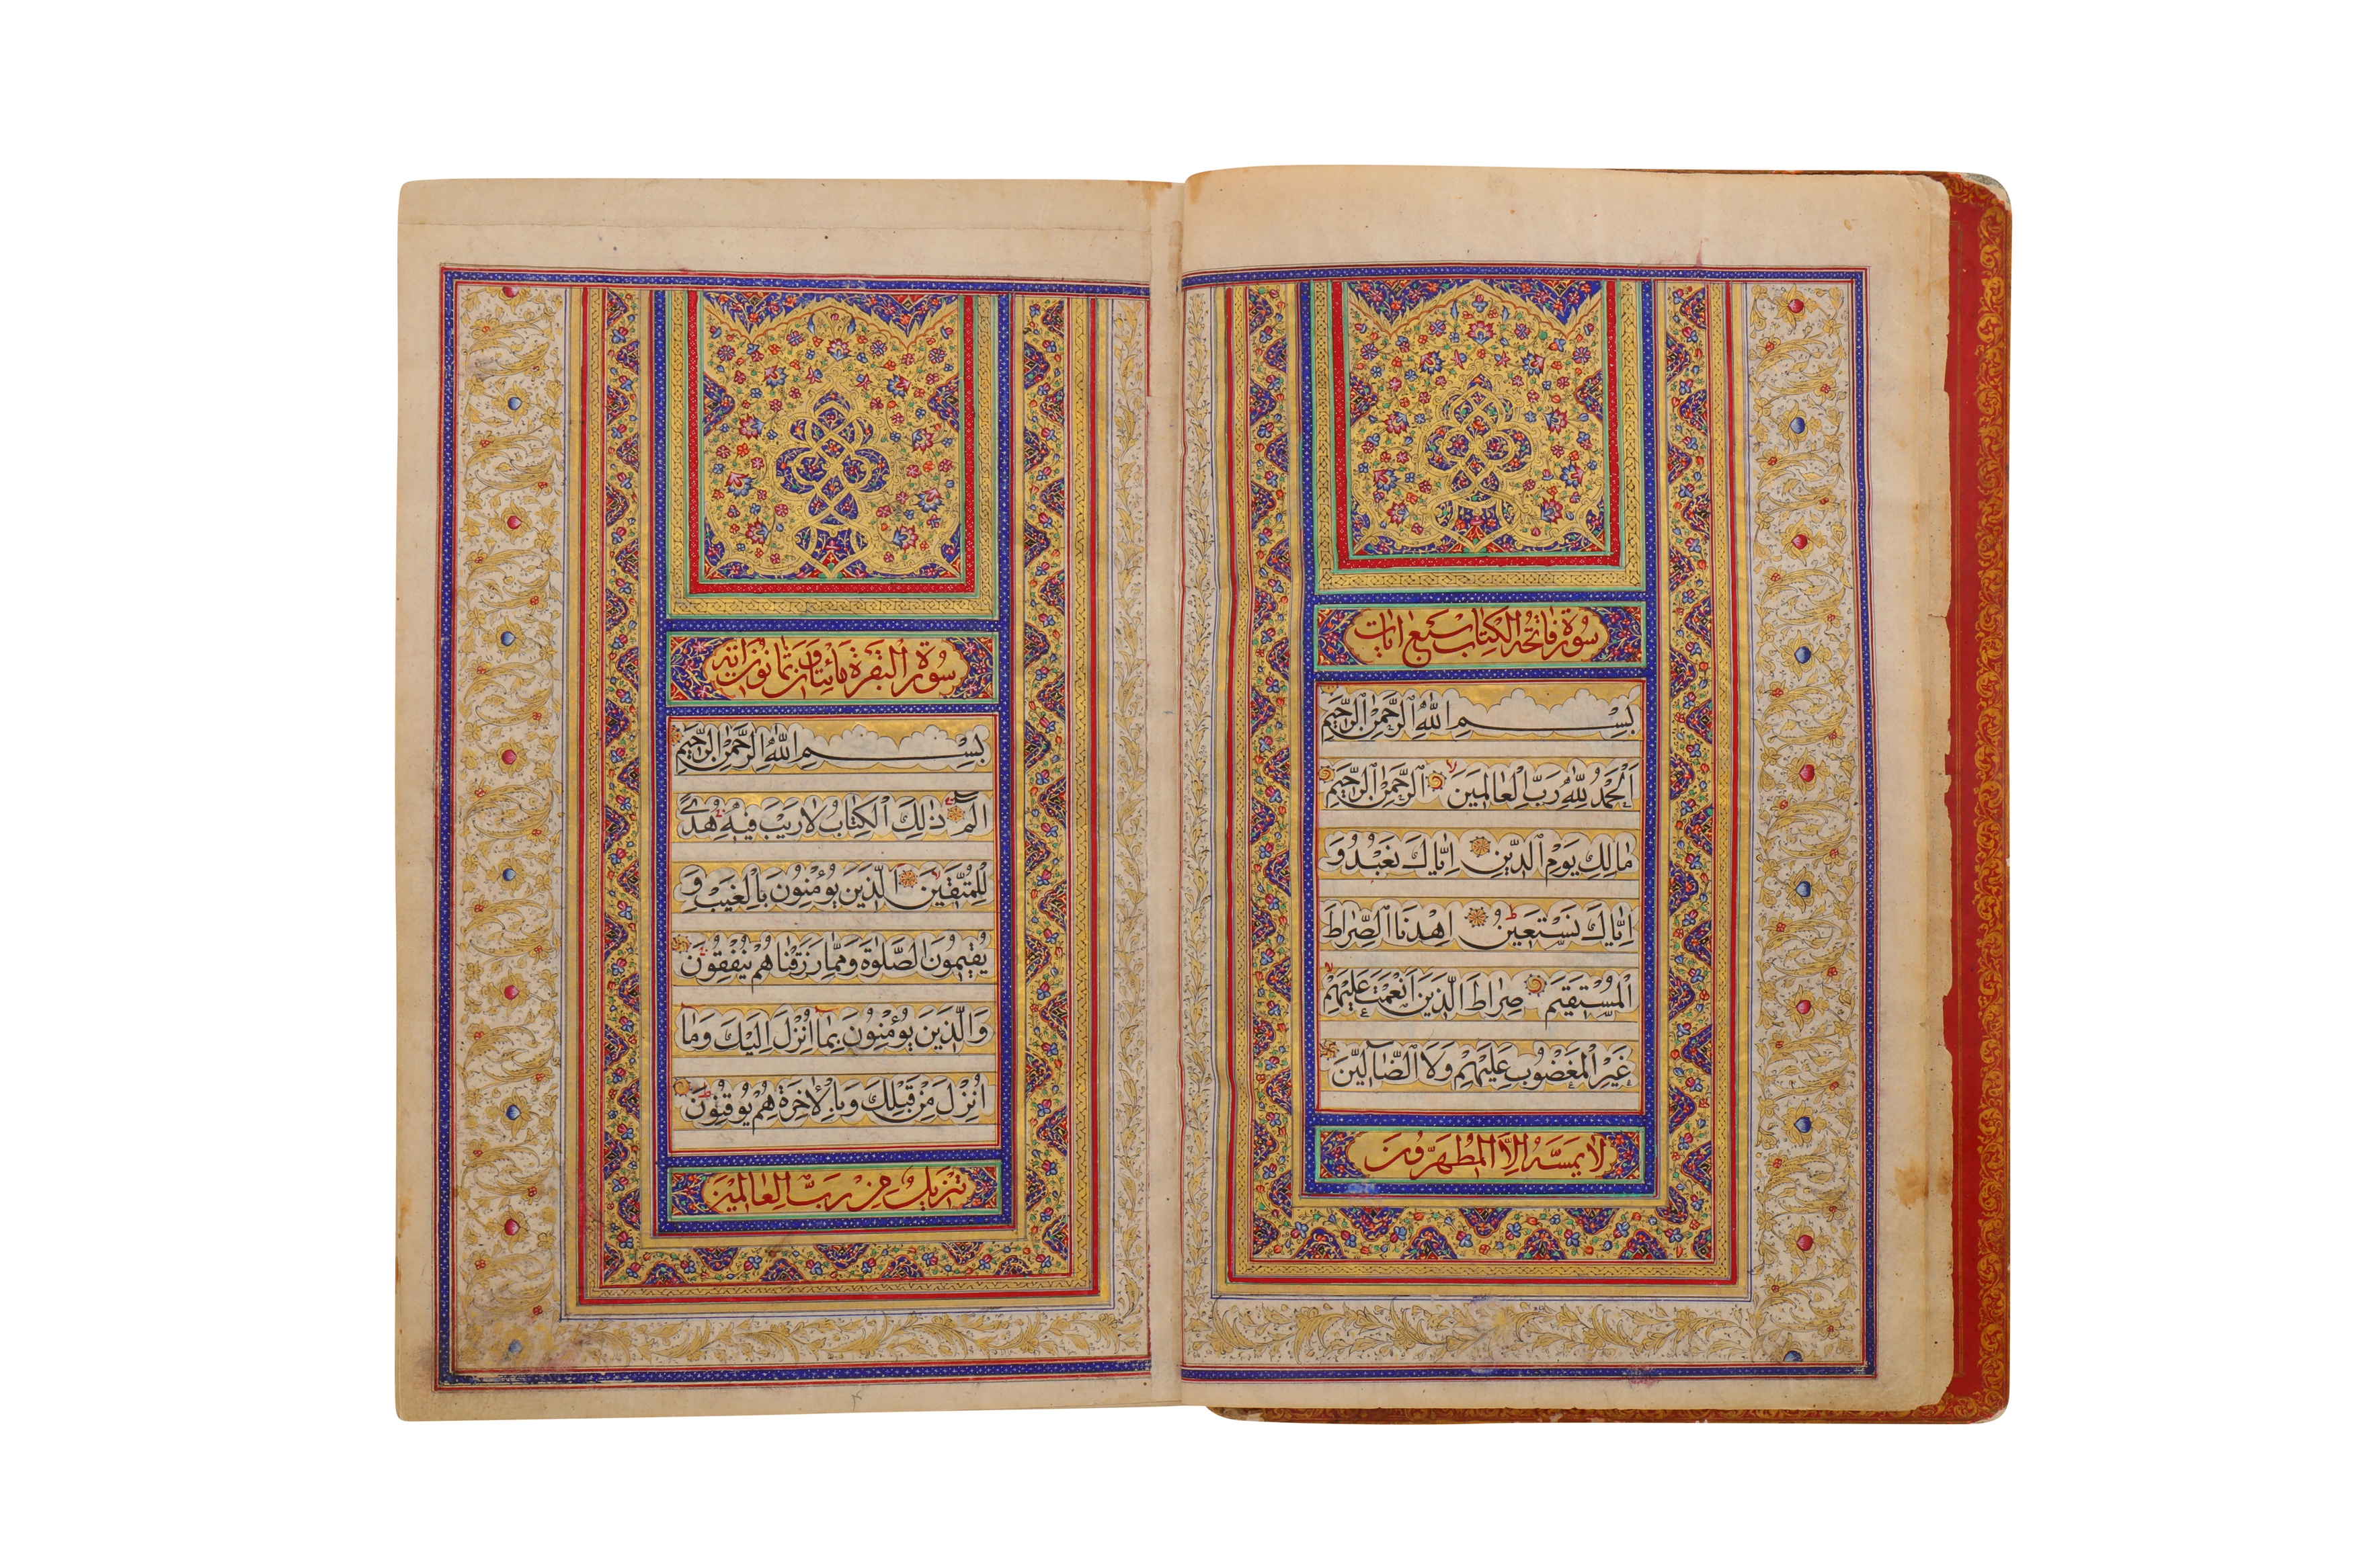 سُورَة فَاتِحَة الكِتَاب سَبع اٰيات
بِسْمِ اللّٰهِ الرَّحْمٰنِ الرَّحِيمِ
اَلْحَمْدُ لِلّٰهِ رَبِّ الْعٰالَمِينَ لا اَلرَّحْمٰنِ الرَّحِيمِ
مٰالِكِ يَوْمِ الدِّينِ اِيّٰاكَ نَعْبُدُ وَ
اِيّٰاكَ نَسْتَعِينُ ط اِهْدِنَا الصِّرٰاطَ
الْمُسْتَقِيمَ صِرٰاطَ الَّذِينَ اَنْعَمْتَ عَلَيْهِمْ لا
غَيْرِ الْمَغْضُوبِ عَلَيْهِمْ وَلَا الضّٰٓالِّينَ
لٰا يَمَسُّهُ اِلَّا الْمُطَهَّرُونَ
سُورَة الْبَقَرَة مِأَتٰان وَ ثَمٰانُونَ اٰيَه
بِسْمِ اللّٰهِ الرَّحْمٰنِ الرَّحِيمِ
الٓمٓ ذٰلِكَ الْكِتٰابُ لٰا رَيْبَ فِيهِ هُدىً
لِلْمُتَّقِينَ لا اَلَّذِينَ يُؤْمِنُونَ بِالْغَيْبِ وَ
يُقِيمُونَ الصَّلٰوةَ وَمِمّٰا رَزَقْنٰاهُمْ يُنْفِقُونَ
وَالَّذِينَ يُؤْمِنُونَ بِمٰٓا اُنْزِلَ اِلَيْكَ وَمٰٓا
اُنْزِلَ مِنْ قَبْلِكَ وَبِالْاٰخِرَةِ هُمْ يُوقِنُونَ ط
تَنْزِيلٌ مِنْ رَبِّ الْعٰالَمِينَ